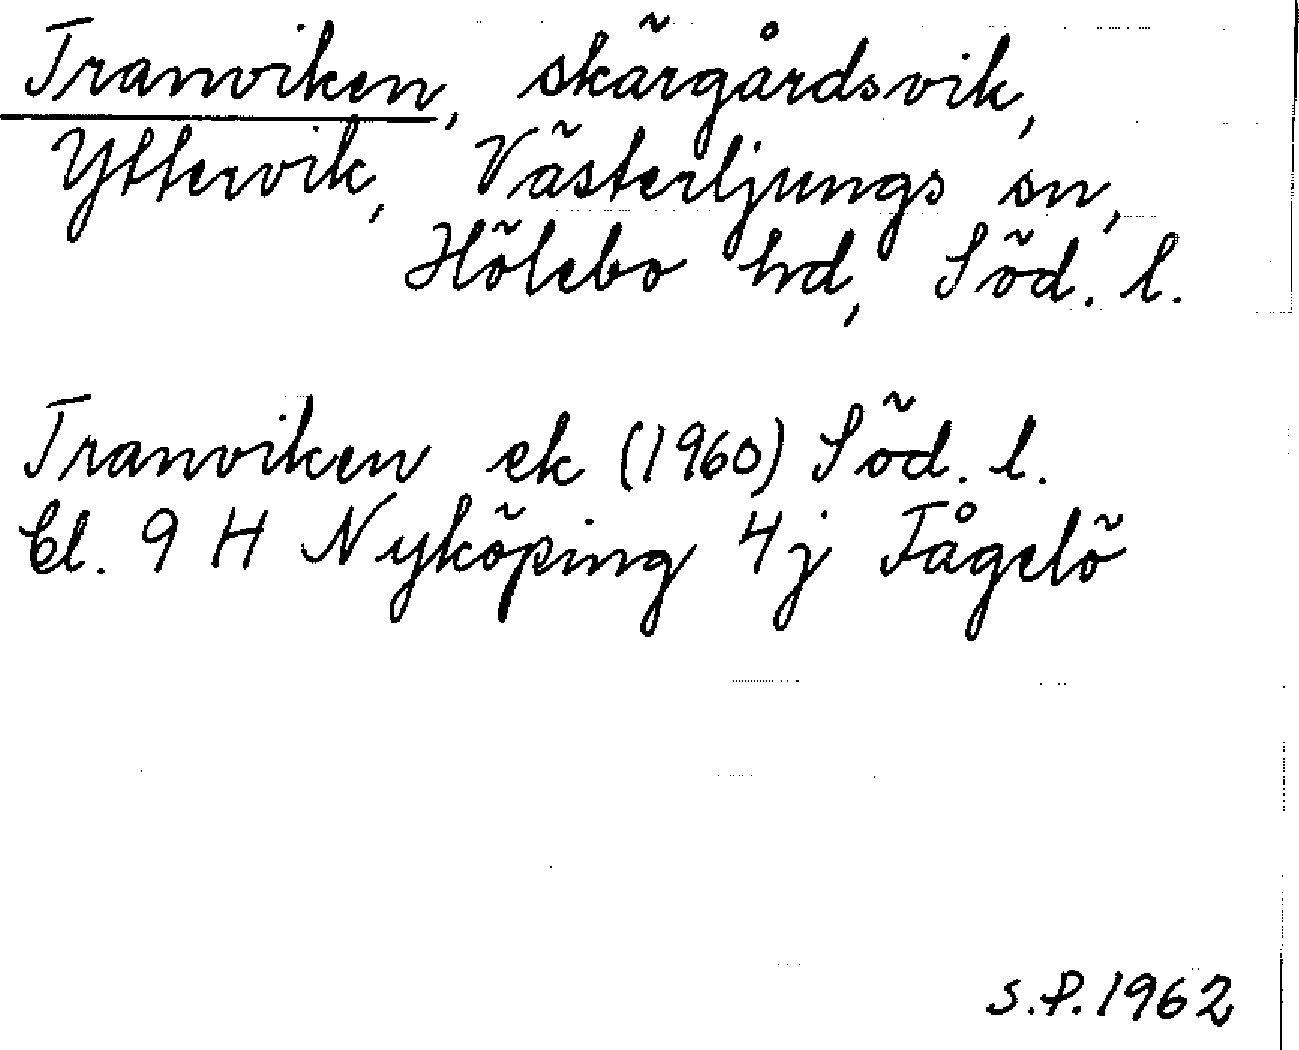 Tranviken, skärgårdsvik,
Yttervik, Västerljungs sn,
Hölebo hd, Söd. l.
Tranviken ek (1960) Söd. l.
Bl. 9 H Nyköping 4j Fågelö
S.P. 1962